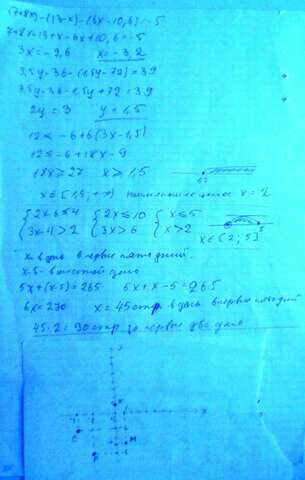 (7+8x)-(13-x)-(6x-10,6)=-5
7+8x-13+x-6x+10,6=-5
3x=-9,6 x=-3,2
3,5y-36-(1,5y-72)=39
3,5y-36-1,5y+72=39
2y=3 y=1,5
12≤-6+6(3x-1,5)
12≤-6+18x-9
18x≥27 x≥1,5
x∈[1,5;+∞) наименьшее целое x=2
{2x-6≤4 {2x≤10 {x≤5
{3x-4>2 {3x>6 {x>2 x∈(2;5]
x в день в первые пять дней.
x-5 - в шестой день
5x+(x-5)=265 5x+x-5=265
6x=270 x=45 стр. в день в первые пять дней
45·2=90 стр за первые два дня